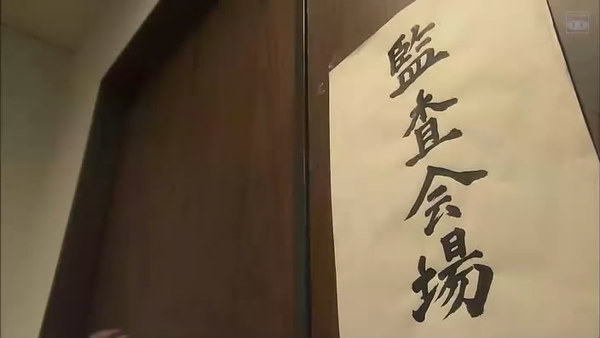 監査会場